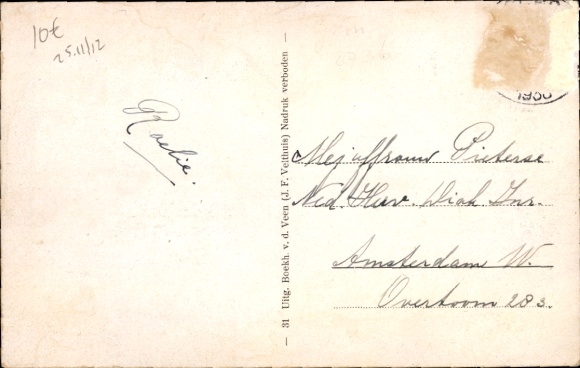 10€
25.11/12
Roelie.
— 31 Uitg. Boekh. v. d. Veen (J. F. Velthuis) Nadruk verboden —
1930
Mejuffrouw Pieterse
Ned. Herv. Diak. Inr.
Amsterdam W.
Overtoom 283.